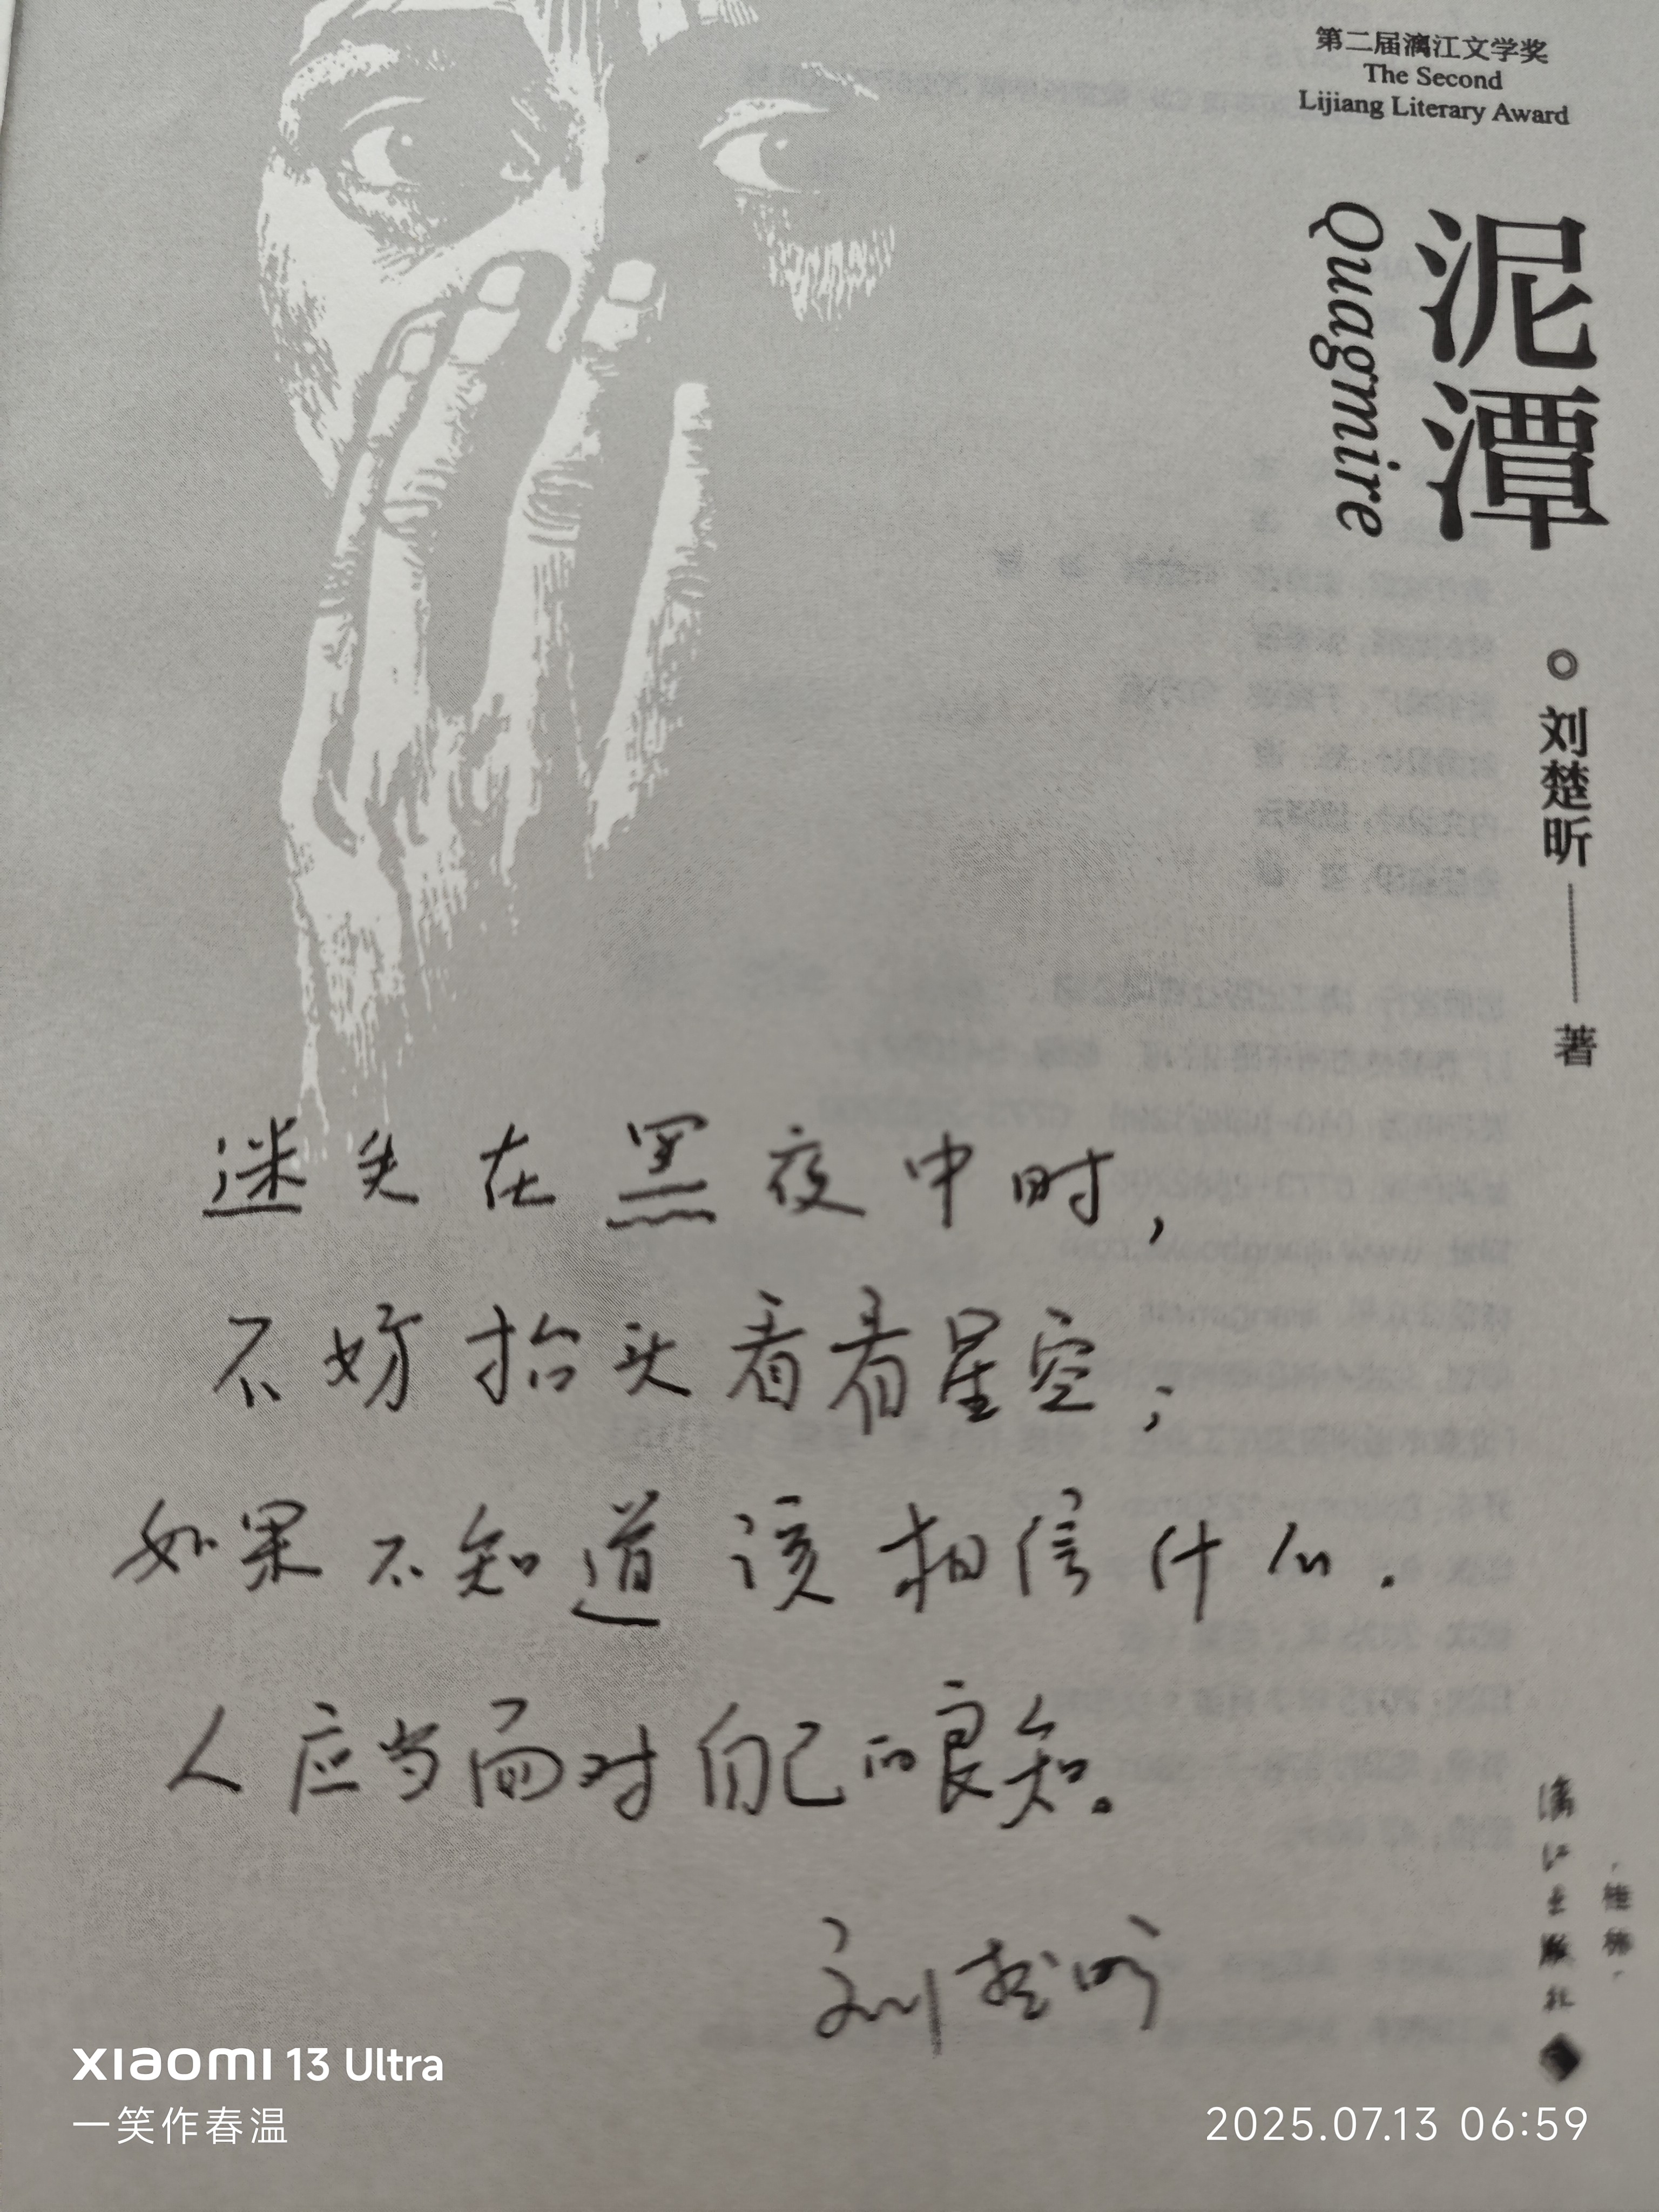 第二届漓江文学奖
The Second
Lijiang Literary Award
泥潭
Quagmire
刘楚昕 著
迷失在黑夜中时，
不妨抬头看看星空；
如果不知道该相信什么.
人应当面对自己的良知。
刘楚昕
漓江出版社
·桂林·
XIAOMI 13 Ultra
一笑作春温
2025.07.13 06:59